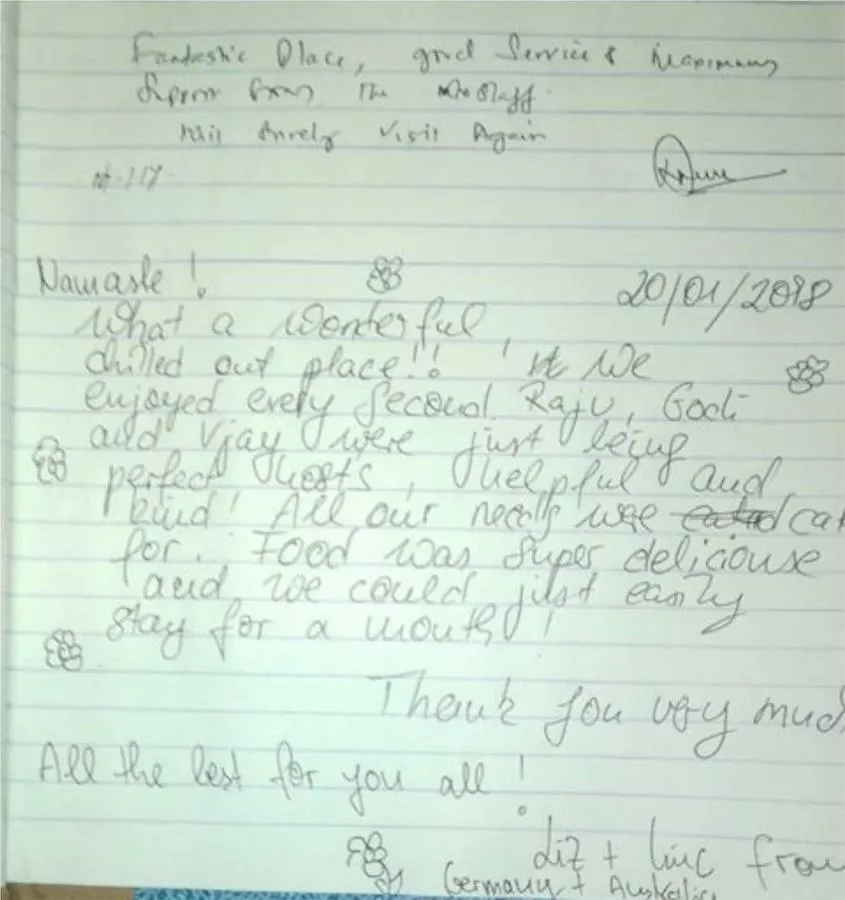 Fantastic Place, good Service & Maximum
Support from The Staff.
Will Surely Visit Again
Namaste!
20/01/2018
What a wonterful,
chilled out place!! We
enjoyed every second. Raju, Godi
and Vjay were just being
perfect hosts, helpful and
kind! All our needs were cat
for. Food was super deliciouse
and we could just easily
stay for a month!
Thank you very much
All the best for you all!
Liz + Linc from
Germany + Australia